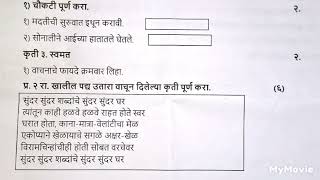 १) चौकटी पूर्ण करा. २.
१) मदतीची सुरुवात इथून करावी.
२) सोनालीने आईच्या हातातले घेतले.
कृती ३. स्वमत २.
१) वाचनाचे फायदे क्रमवार लिहा.
प्र. २ रा. खालील पद्य उतारा वाचून दिलेल्या कृती पूर्ण करा. (६)
सुंदर सुंदर शब्दांचे सुंदर सुंदर घर
त्यांतून काही हळवे हळवे राहत होते स्वर
घरात होता, काना-मात्रा-वेलांटीचा मेळ
एकोप्याने खेळायाचे सगळे अक्षर-खेळ
विरामचिन्हांचीही होती सोबत वरचेवर
सुंदर सुंदर शब्दांचे सुंदर सुंदर घर
MyMovie